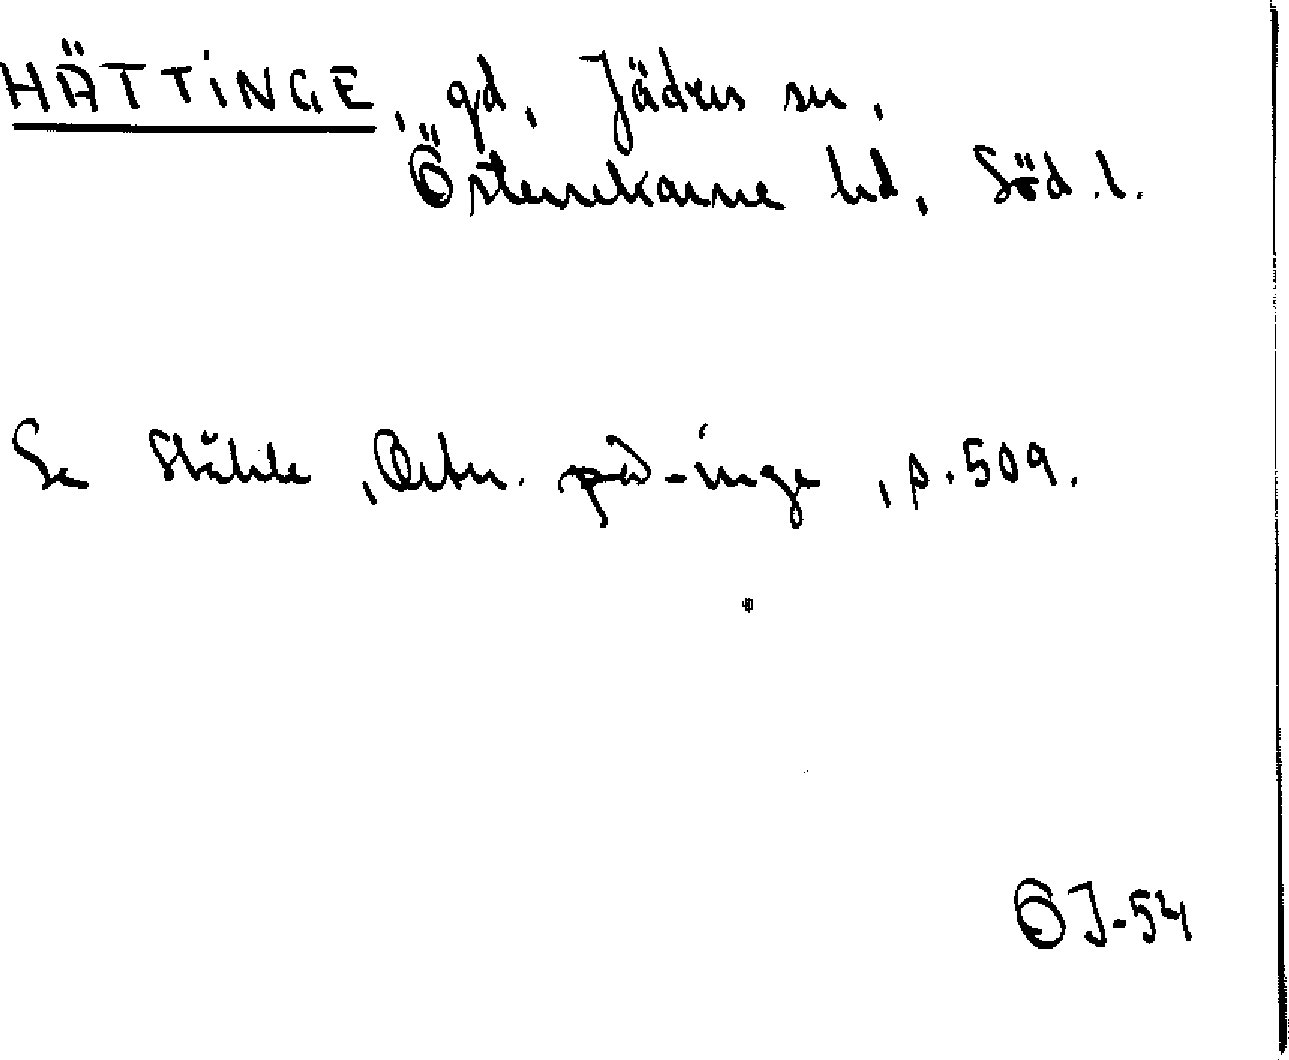 HÄTTINGE, gd, Jäders sn,
Österrekarne hd, Söd.l.
Se Ståhle, Ortn. på -inge, p. 509.
OJ-54